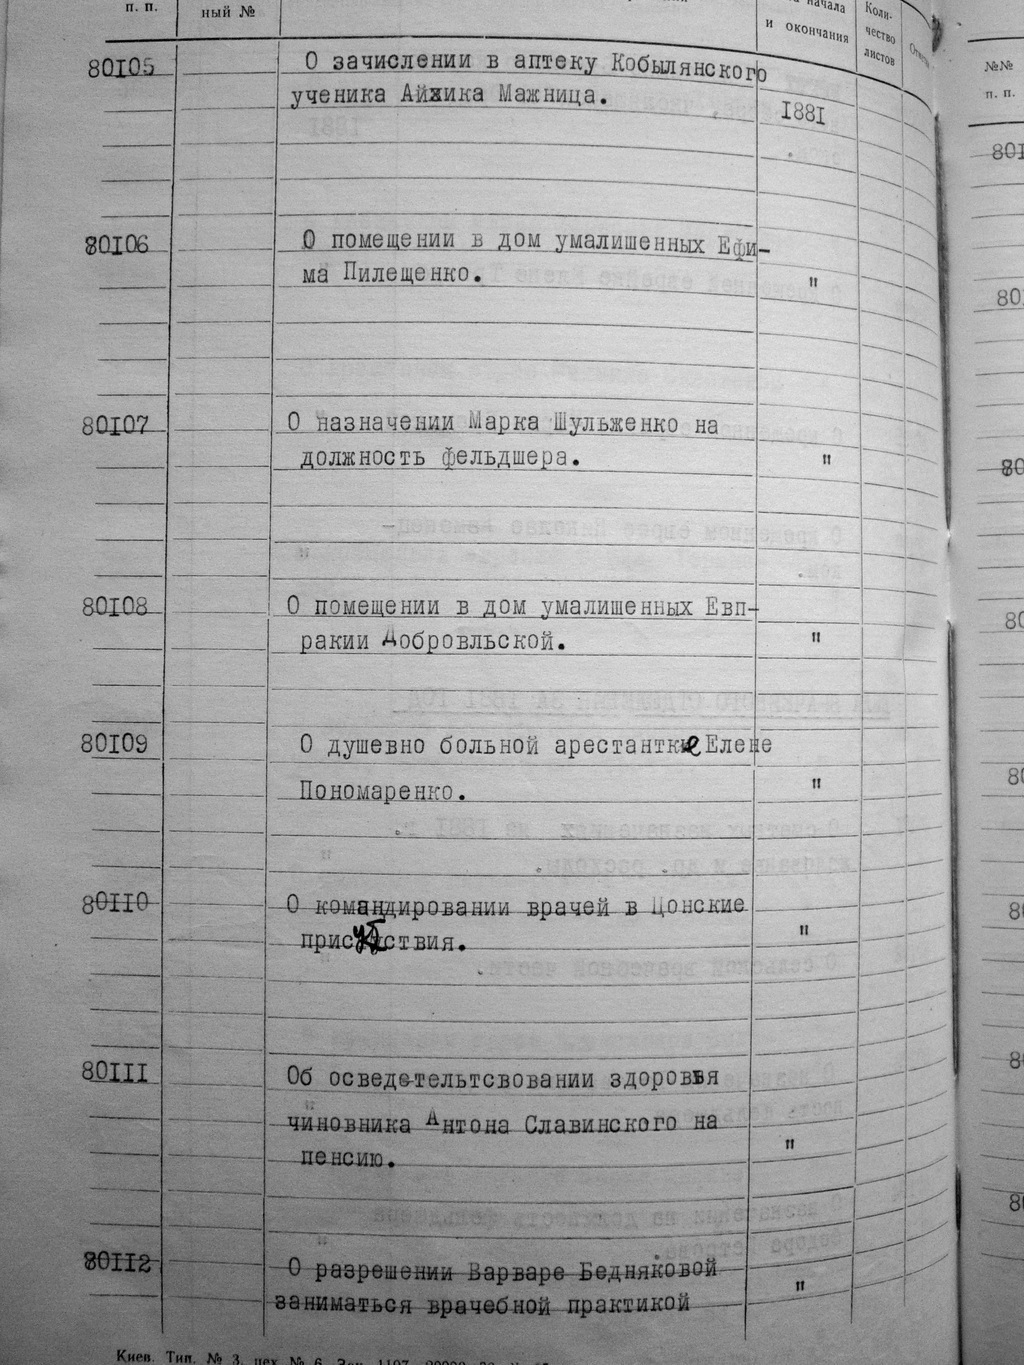 п. п.
ный №
начала
и окончания
Коли-
чество
листов
№№
п. п.
80105
О зачислении в аптеку Кобылянского
ученика Айжика Мажница.
1881
80106
О помещении в дом умалишенных Ефи-
ма Пилещенко.
"
80107
О назначении Марка Шульженко на
должность фельдшера.
"
80108
О помещении в дом умалишенных Евп-
ракии Добровльской.
"
80109
О душевно больной арестантке Елене
Пономаренко.
"
80110
О командировании врачей в Цонские
"
80111
Об осведетельтсвовании здоровья
чиновника Антона Славинского на
пенсию.
"
80112
О разрешении Варваре Бедняковой
заниматься врачебной практикой
"
Киев. Тип. № 3, цех № 6. Зак. 1107